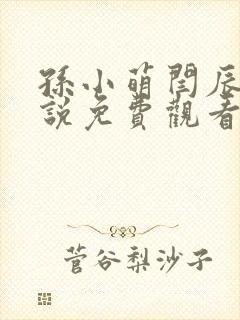 孫小萌閆辰
說免費觀看
菅谷梨沙子